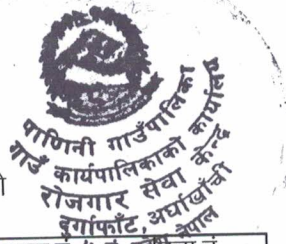 पाणिनी गाउँपालिका
गाउँ कार्यपालिकाको कार्यालय
रोजगार सेवा केन्द्र
दुर्गाफाँट, अर्घाखाँची
नेपाल